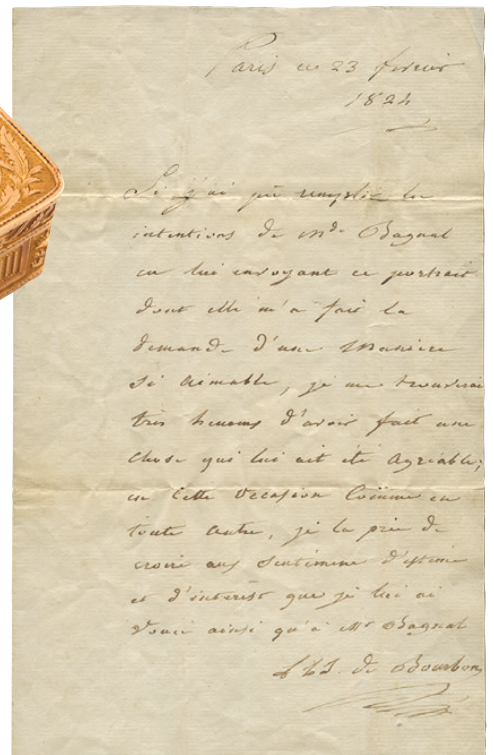 Paris ce 23 fevrier
1824
Si j'ai pu remplir les
intentions de Mde Bagnal
en lui envoyant ce portrait
dont elle m'a fait la
demande d'une maniere
si aimable, je me trouverai
très heureux d'avoir fait une
chose qui lui ait été agréable;
en cette occasion comme en
toute autre, je la prie de
croire aux sentimens d'estime
et d'interêst que je lui ai
voués ainsi qu'à Mr Bagnal
de Bourbon